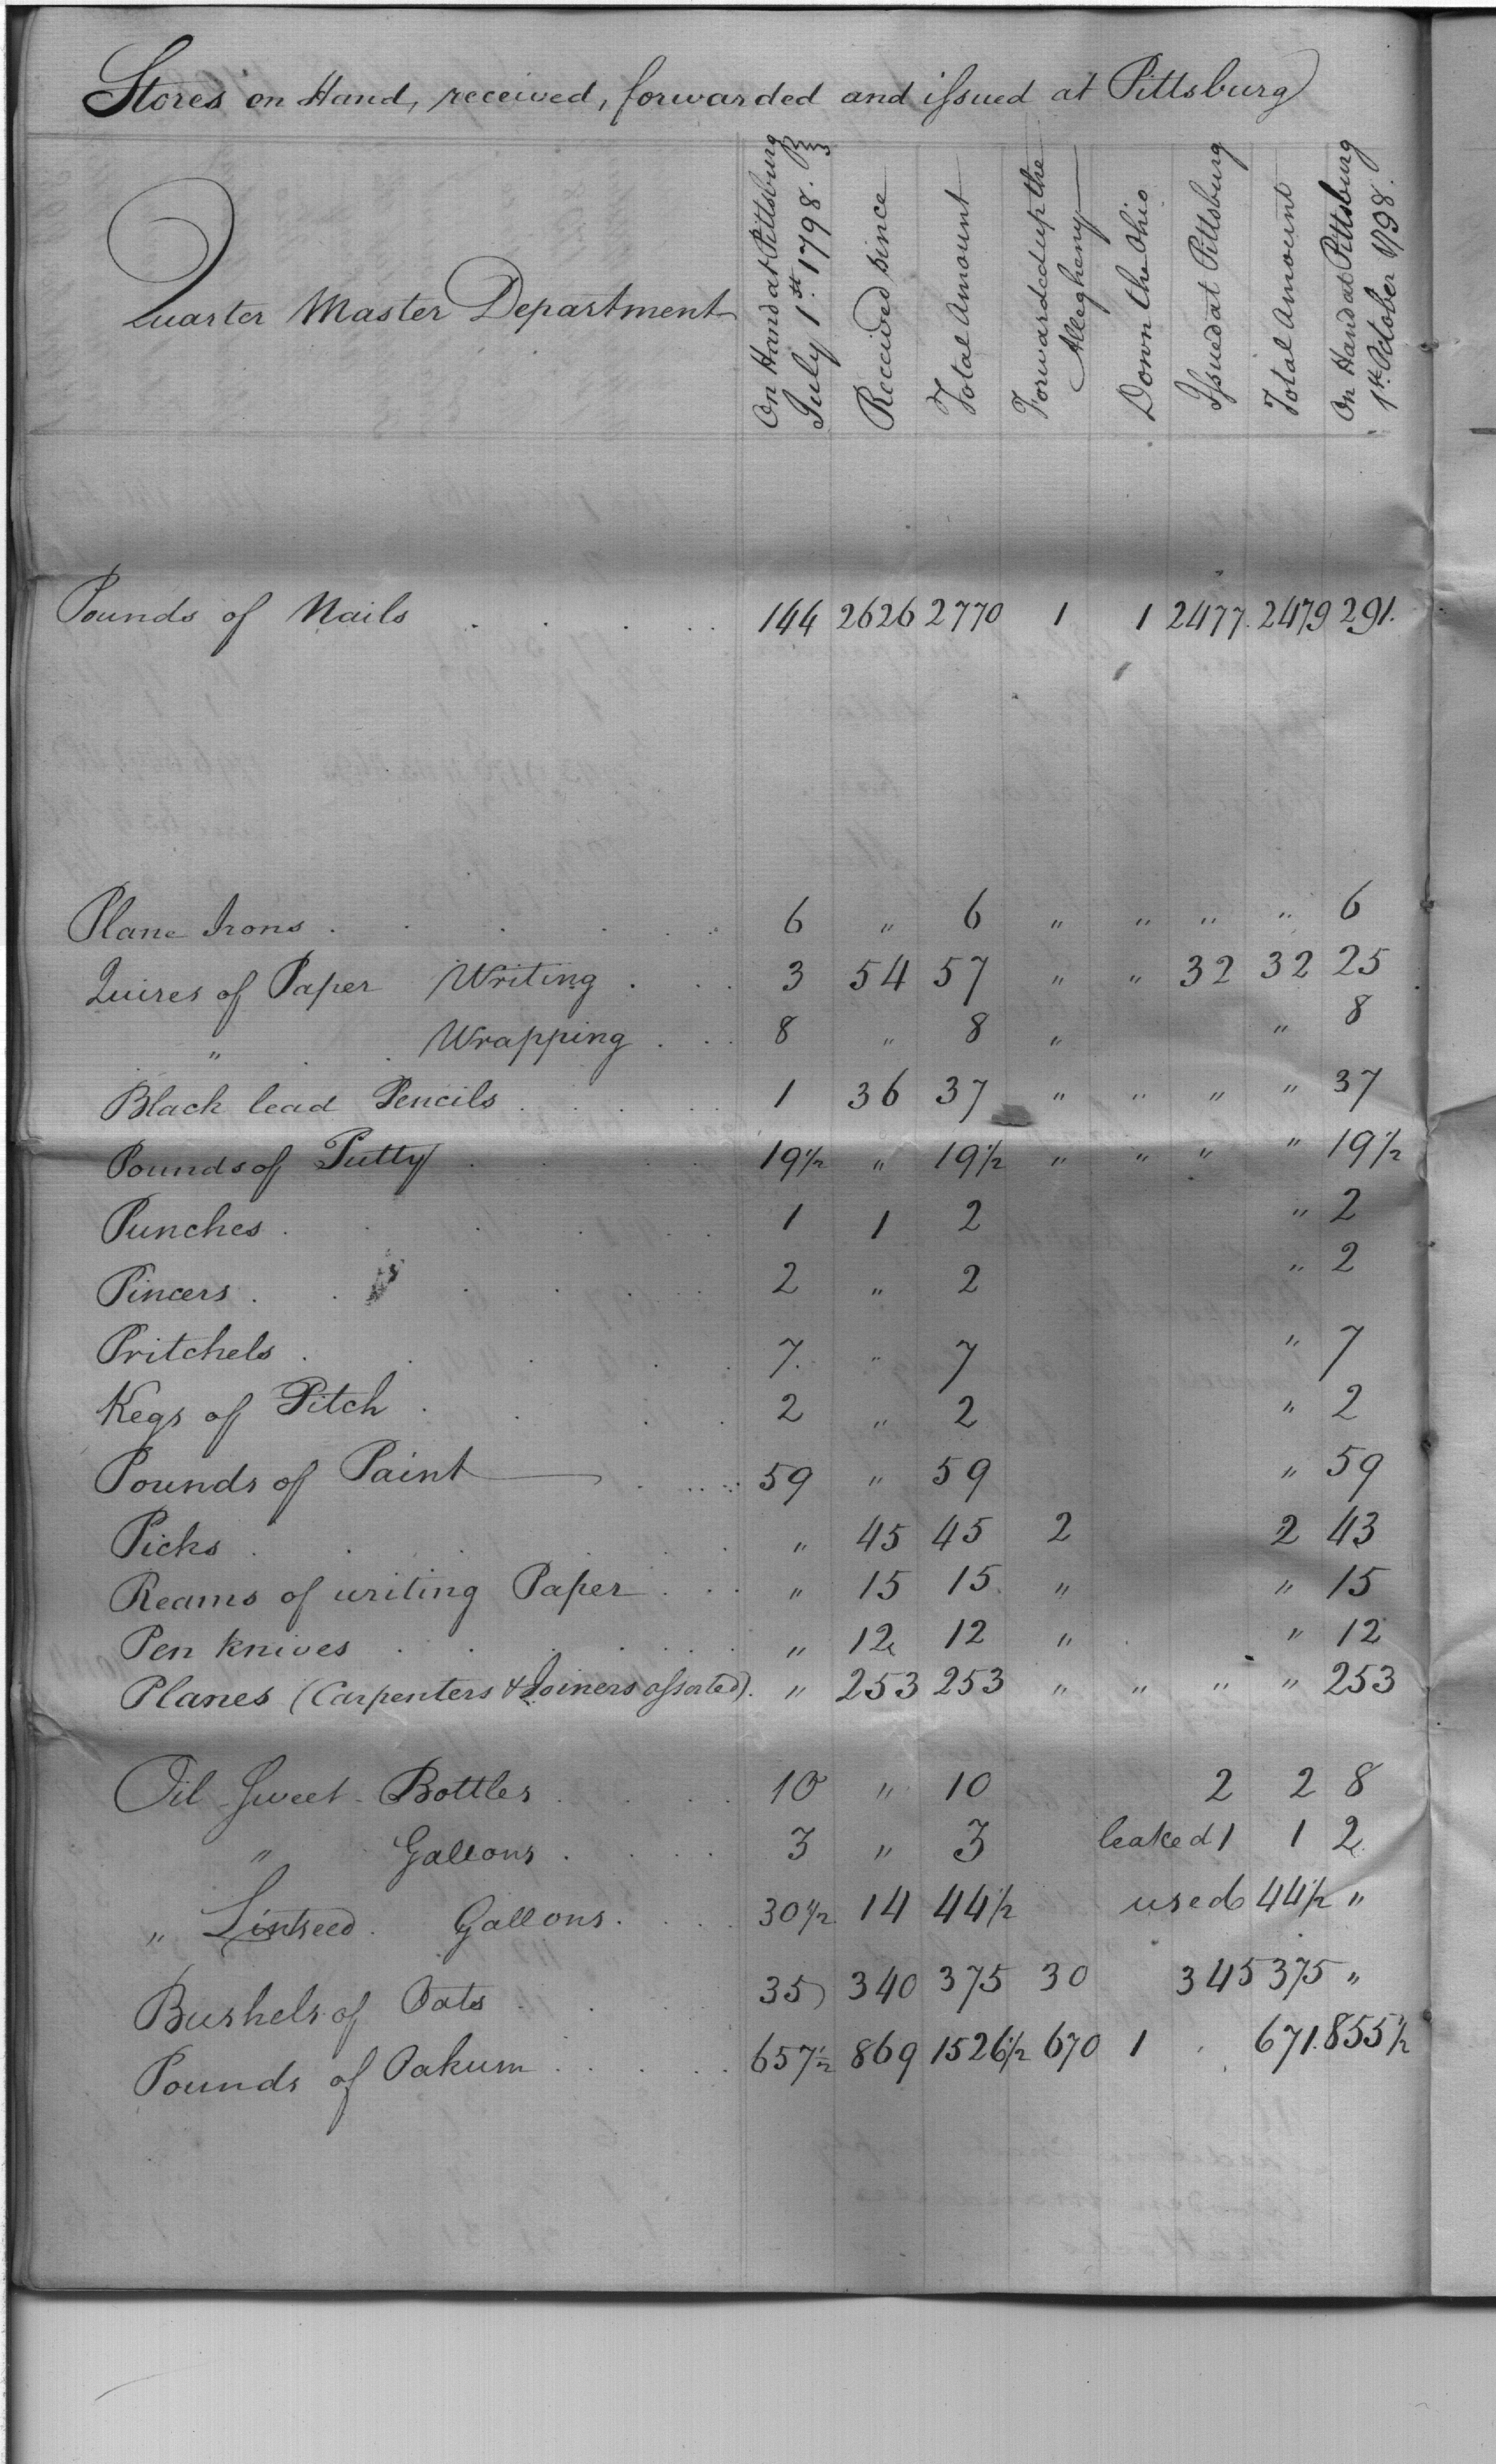 Stores on Hand, received, forwarded and issued at Pittsburg
Quarter Master Department
On Hand at Pittsburg
July 1st. 1798.
Received since
Total Amount
Forwarded up the
Allegheny
Down the Ohio
Issued at Pittsburg
Total Amount
On Hand at Pittsburg
1st. October 1798.
Pounds of Nails . . . . . 144 2626 2770 1 1 2477. 2479 291.
Plane Irons . . . . . 6 " 6 " " " " 6
Quires of Paper Writing . . . 3 54 57 " " 32 32 25
" . . Wrapping . . . 8 " 8 " " 8
Black lead Pencils . . . . . 1 36 37 " " " " 37
Pounds of Putty . . . . . 19 1/2 " 19 1/2 " " " " 19 1/2
Punches . . . . . 1 1 2 " 2
Pincers . . . . . 2 " 2 " 2
Pritchels . . . . . 7. " 7 " 7
Kegs of Pitch . . . . . 2 " 2 " 2
Pounds of Paint . . . . 59 " 59 " 59
Picks . . . . . " 45 45 2 2 43
Reams of writing Paper . . . " 15 15 " " 15
Pen knives . . . . . " 12 12 " " 12
Planes (Carpenters & Joiners assorted). " 253 253 " " " " 253
Oil Sweet Bottles . . . . 10 " 10 2 2 8
" Gallons . . . . 3 " 3 leaked 1 1 2
" Lintseed. Gallons. . . . 30 1/2 14 44 1/2 used 44 1/2 "
Bushels of Oats . . . . 35 340 375 30 345 375 "
Pounds of Oakum . . . . . 657 1/2 869 1526 1/2 670 1 671. 855 1/2